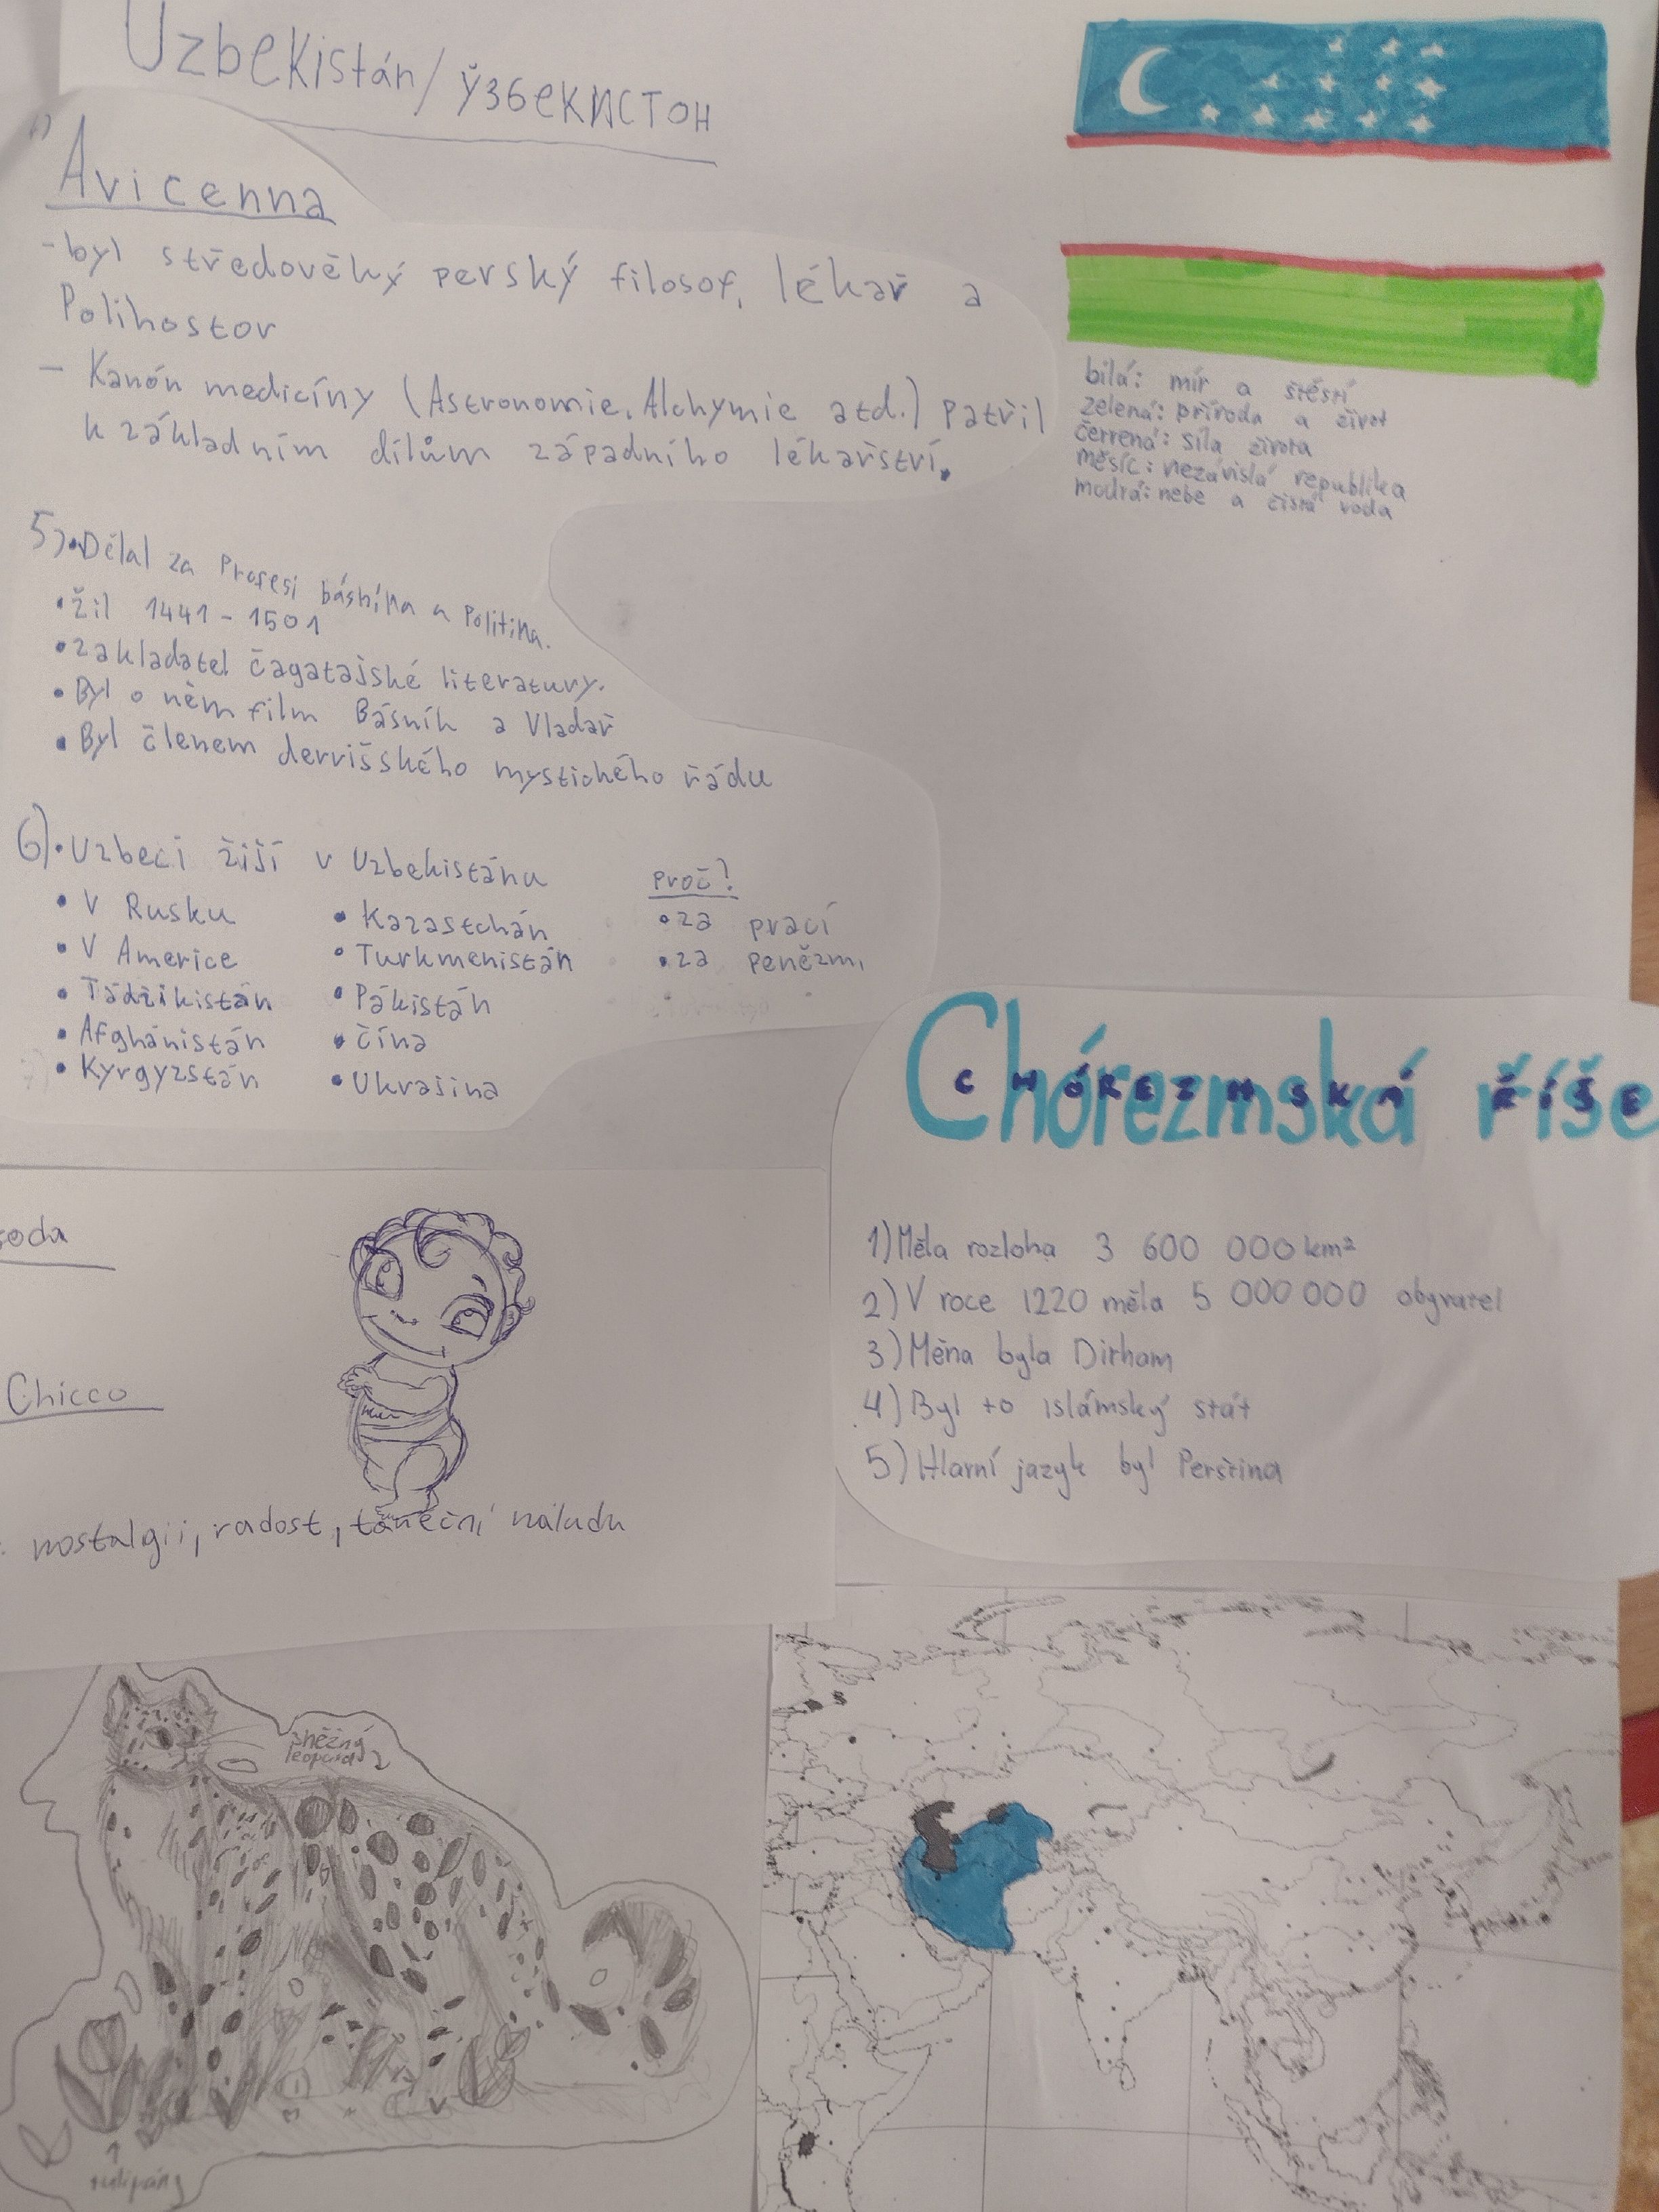 Uzbekistán/ўзбекистон
1)
Avicenna
- byl středověký perský filosof, lékař a
Polihostor
- Kanón medicíny (Astronomie, Alchymie atd.) patřil
k základním dílům západního lékařství.
bílá: mír a štěstí
zelená: príroda a život
červená: síla života
měsíc: nezávislá republika
modrá: nebe a čistá voda
5) • Dělal za Profesi básníka a Politika.
• Žil 1441 - 1501
• zakladatel čagatajské literatury.
• Byl o něm film Básník a Vladař
• Byl členem dervišského mystického řádu
6) • Uzbeci žijí v Uzbekistánu
• V Rusku
• V Americe
• Tádžikistán
• Afghánistán
• Kyrgyzstán
• Kazastchán
• Turkmenistán
• Pákistán
• Čína
• Ukrajina
proč?
• za prací
• za penězmi
Chórezmská říše
CHÓREZMSKÁ ŘÍŠE
1) Měla rozloha 3 600 000 km²
2) V roce 1220 měla 5 000 000 obyvatel
3) Měna byla Dirham
4) Byl to islámský stát
5) Hlavní jazyk byl Perština
oda
Chicco
nostalgii, radost, taneční náladu
sněžný
leopard
tulipány